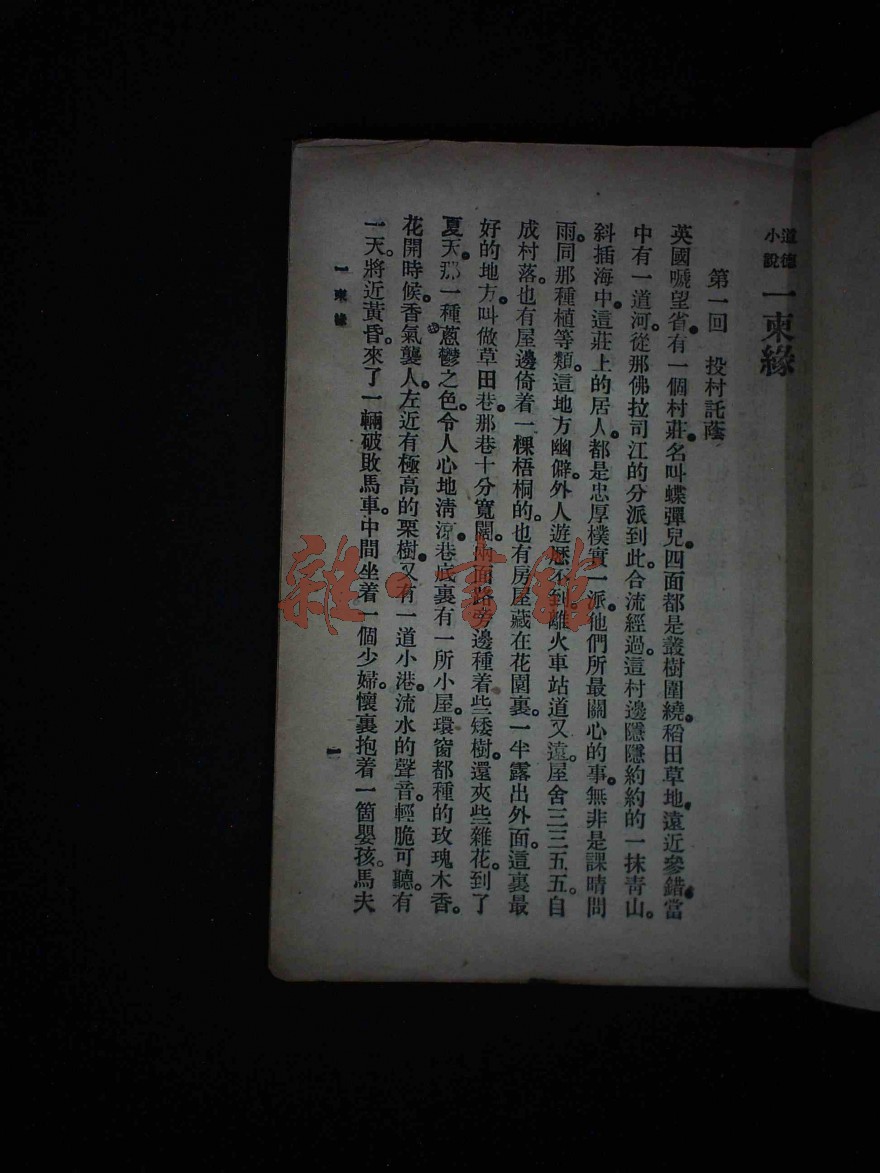 道德
小說
一柬緣
第一回　投村託蔭
英國㗭望省。有一個村莊。名叫蝶彈兒。四面都是叢樹圍繞。稻田草地。遠近參錯。當
中有一道河。從那佛拉司江的分派到此。合流經過。這村邊隱隱約約的一抹青山。
斜插海中。這莊上的居人。都是忠厚樸實一派。他們所最關心的事。無非是課晴問
雨。同那種植等類。這地方幽僻。外人遊歷不到。離火車站道又遠。屋舍三三五五。自
成村落。也有屋邊倚着一棵梧桐的。也有房屋藏在花園裏。一半露出外面。這裏最
好的地方。叫做草田巷。那巷十分寬闊。兩面路旁邊種着些矮樹。還夾些雜花。到了
夏天。那一種蔥鬱之色。令人心地清涼。巷底裏有一所小屋。環窗都種的玫瑰木香。
花開時候。香氣襲人。左近有極高的栗樹。又有一道小港。流水的聲音。輕脆可聽。有
一天。將近黃昏。來了一輛破敗馬車。中間坐着一個少婦。懷裏抱着一箇嬰孩。馬夫
一柬緣
一
雜·書館